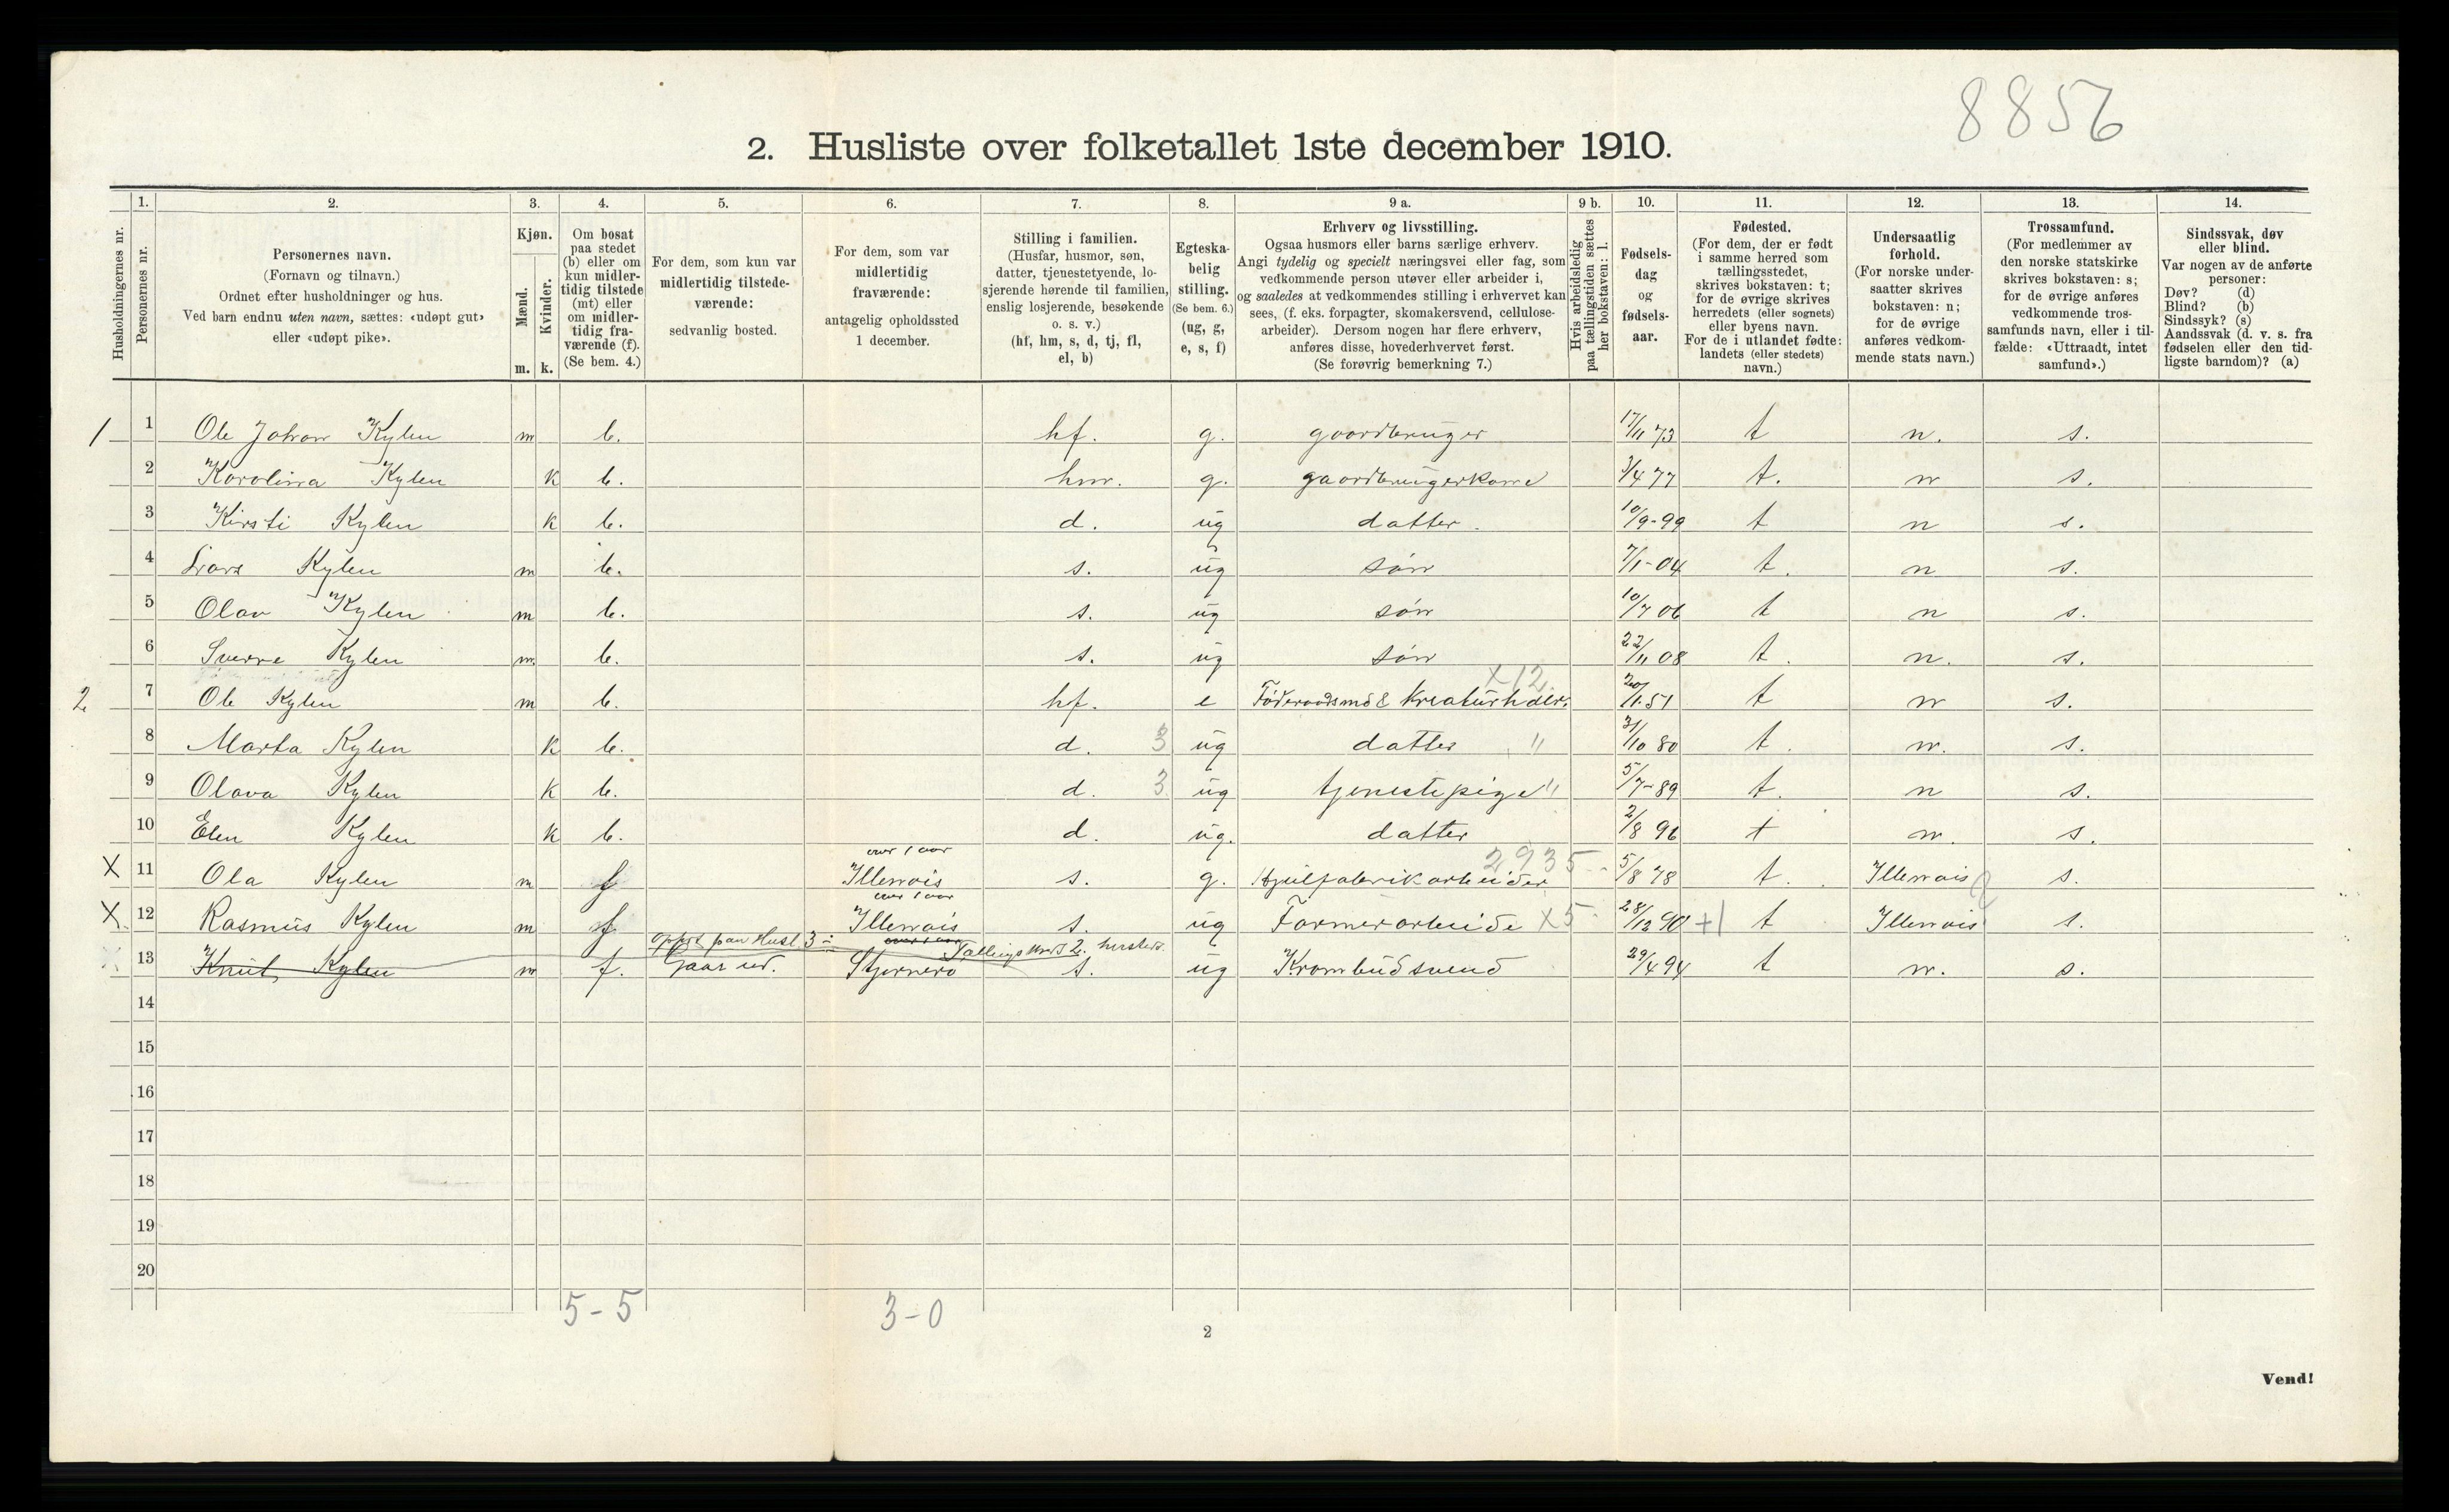 8856
2. Husliste over folketallet 1ste december 1910.
1. 2. 3. 4. 5. 6. 7. 8. 9 a. 9 b. 10. 11. 12. 13. 14.
Husholdningernes nr.
Personernes nr.
Personernes navn.
(Fornavn og tilnavn.)
Ordnet efter husholdninger og hus.
Ved barn endnu uten navn, sættes: «udøpt gut»
eller «udøpt pike».
Kjøn.
Mænd.
Kvinder.
m. k.
Om bosat
paa stedet
(b) eller om
kun midler-
tidig tilstede
(mt) eller
om midler-
tidig fra-
værende (f).
(Se bem. 4.)
For dem, som kun var
midlertidig tilstede-
værende:
sedvanlig bosted.
For dem, som var
midlertidig
fraværende:
antagelig opholdssted
1 december.
Stilling i familien.
(Husfar, husmor, søn,
datter, tjenestetyende, lo-
sjerende hørende til familien,
enslig losjerende, besøkende
o. s. v.)
(hf, hm, s, d, tj, fl,
el, b)
Egteska-
belig
stilling.
(Se bem. 6.)
(ug, g,
e, s, f)
Erhverv og livsstilling.
Ogsaa husmors eller barns særlige erhverv.
Angi tydelig og specielt næringsvei eller fag, som
vedkommende person utøver eller arbeider i,
og saaledes at vedkommendes stilling i erhvervet kan
sees, (f. eks. forpagter, skomakersvend, cellulose-
arbeider). Dersom nogen har flere erhverv,
anføres disse, hovederhvervet først.
(Se forøvrig bemerkning 7.)
Hvis arbeidsledig
paa tællingstiden sættes
her bokstaven: l.
Fødsels-
dag
og
fødsels-
aar.
Fødested.
(For dem, der er født
i samme herred som
tællingsstedet,
skrives bokstaven: t;
for de øvrige skrives
herredets (eller sognets)
eller byens navn.
For de i utlandet fødte:
landets (eller stedets)
navn.)
Undersaatlig
forhold.
(For norske under-
saatter skrives
bokstaven: n;
for de øvrige
anføres vedkom-
mende stats navn.)
Trossamfund.
(For medlemmer av
den norske statskirke
skrives bokstaven: s;
for de øvrige anføres
vedkommende tros-
samfunds navn, eller i til-
fælde: «Uttraadt, intet
samfund».)
Sindssvak, døv
eller blind.
Var nogen av de anførte
personer:
Døv? (d)
Blind? (b)
Sindssyk? (s)
Aandssvak (d. v. s. fra
fødselen eller den tid-
ligste barndom)? (a)
1 1 Ole Johan Kylen m b. hf. g. gaardbruger 17/11 73 t n. s.
2 Karolina Kylen k b. hm. g. gaardbrugerkone 3/4 77 t. n s.
3 Kirsti Kylen k b. d. ug datter. 10/9-99 t n s.
4 Lars Kylen m b. s. ug søn 7/1-04 t. n s.
5 Olav Kylen m b. s. ug søn 10/7 06 t n s.
6 Sverre Kylen m. b. s. ug søn 22/11 08 t. n. s.
X12
2 7 Ole Kylen m b. hf. e Føderaadsmd & Kreaturhdlr. 20/11-51 t n s.
8 Marta Kylen k b. d. 3 ug datter " 31/10 80 t. n. s.
9 Olava Kylen k b. d. 3 ug tjenestepige " 5/7-89 t. n s.
10 Elen Kylen k b. d. ug. datter 2/8 96 t n. s.
over 1 aar 2935
X 11 Ola Kylen m f Illenois s. g. Hjulfabrikarbeider 5/8 78 t. Illenois s.
over 1 aar
X. 12 Rasmus Kylen m f. Illenois s. ug Farmerarbeide X5 28/12 90 +1 t Illenois s.
opført paa Husl. 3 Tællings krds 2. herster.
13 Knut Kylen m f. Gaar ud. Stjernerø s. ug Krambudsvend 29/4 94 t n. s.
14
15
16
17
18
19
20
5-5 3-0
2
Vend!